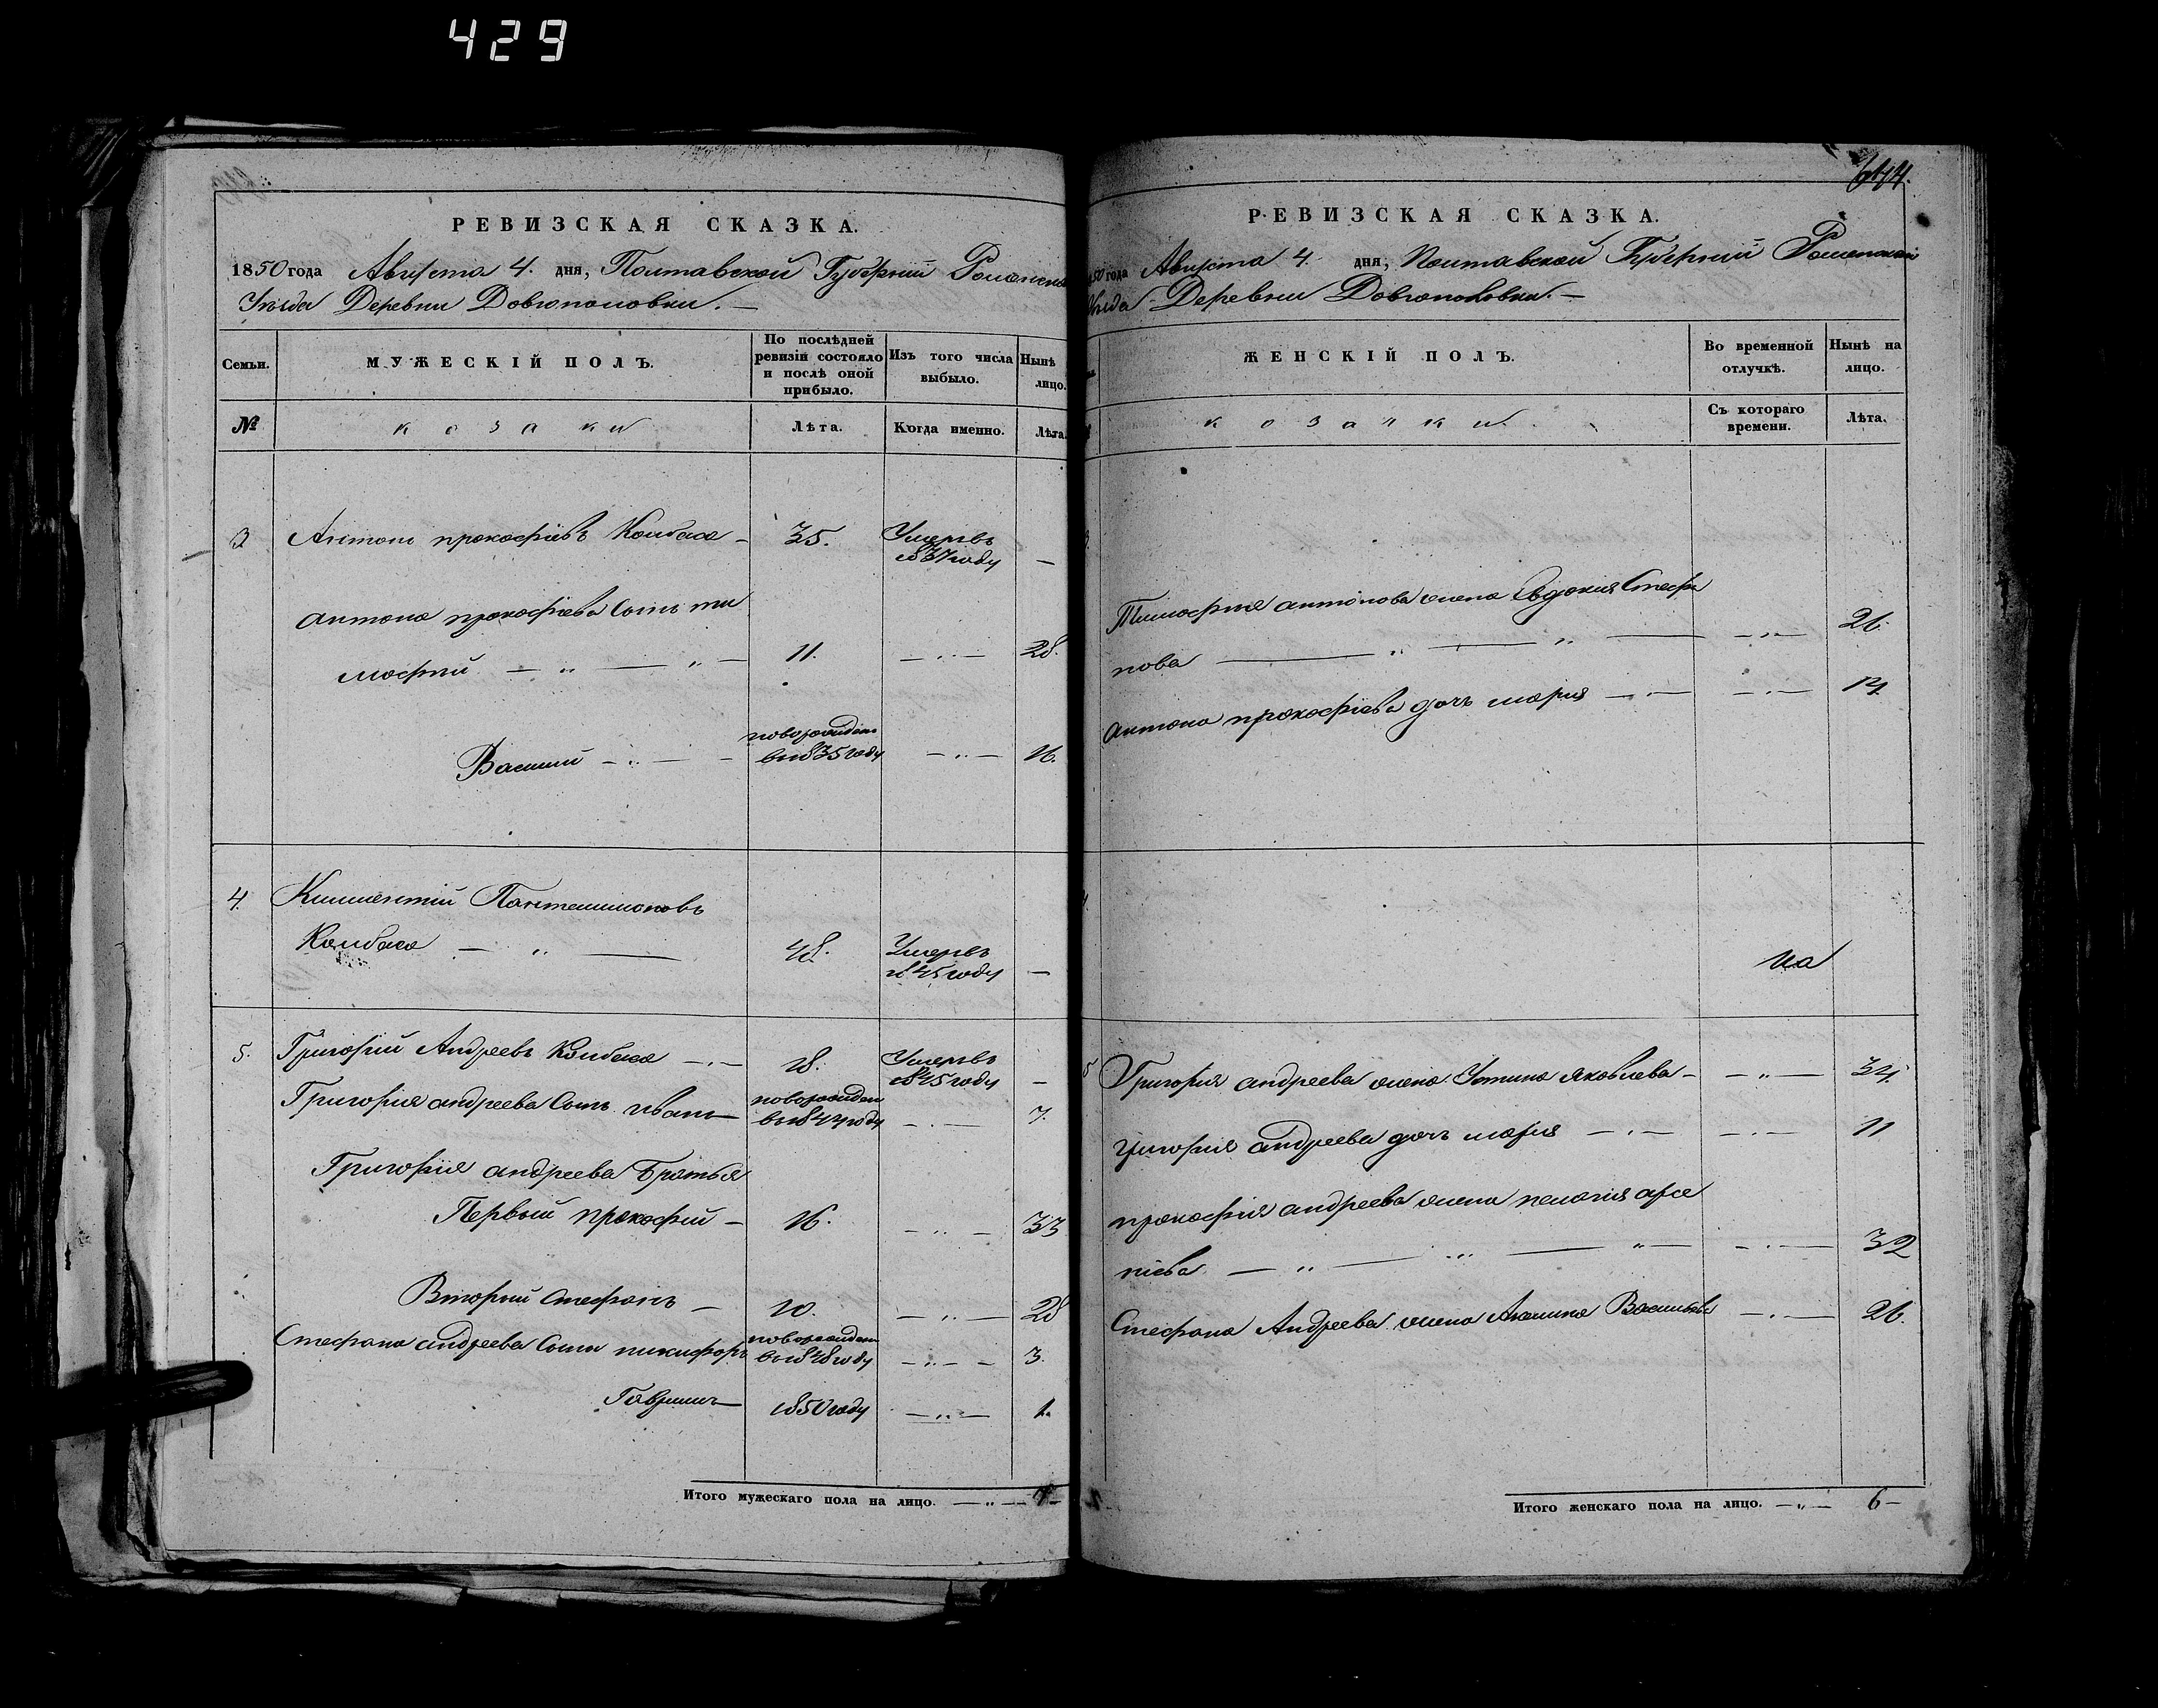 429
РЕВИЗСКАЯ СКАЗКА.
1850 года Августа 4. дня, Полтавской Губерніи Роменска
Уѣзда Деревни Довгополовки. —
Семьи.
МУЖЕСКІЙ ПОЛЪ.
По послѣдней ревизіи состояло и послѣ оной прибыло.
Изъ того числа выбыло.
Нынѣ лицо.
№
козаки
Лѣта.
Когда именно.
Лѣта.
3 Антонъ прокофіевъ Колбаса — 35. Умеръ въ
1837 году —
Антона прокофіева Сынъ ти
мофій — „ — „ — 11. — „ — 28.
новорожден
Василій — „ — — в 1835 году — „ — 16.
4. Климентій Пантелимоновъ
Колбаса — „ — 48. Умеръ въ
1845 году —
5. Григорій Андреевъ Колбаса — „ — 18. Умеръ въ
1845 году —
Григорія андреева Сынъ иванъ — новорожден
в 1844 году — „ — 7.
Григорія андреева Братья
Первый прокофій — 16. — „ — 33
Вторый Стефанъ — 10. — „ — 28
Стефана андреева Сыны никифоръ новорожден
в 1848 году — „ — 3.
Гаврилъ — 1850 году — „ — 1.
Итого мужескаго пола на лицо. — „ —
РЕВИЗСКАЯ СКАЗКА.
50 года Августа 4. дня, Полтавской Губерніи Роменской
ѣзда Деревни Довгополовки. —
ЖЕНСКІЙ ПОЛЪ.
Во временной отлучкѣ.
Нынѣ на лицо.
козачки.
Съ котораго времени.
Лѣта.
Тимофія антонова жена Евдокия Стефа
нова — „ — „ — — „ — 26.
Антона прокофіева дочь мария — „ — — „ — 14.
На
5 Григория андреева жена Устина яковлева — — „ — 34.
григория андреева дочь мария — „ — — „ — 11
прокофия андреева жена пелагия арсе
ніева — „ — „ — „ — — „ — 32
Стефана Андреева жена Акилина Васильева — „ — 26.
Итого женскаго пола на лицо. — „ — 6 —